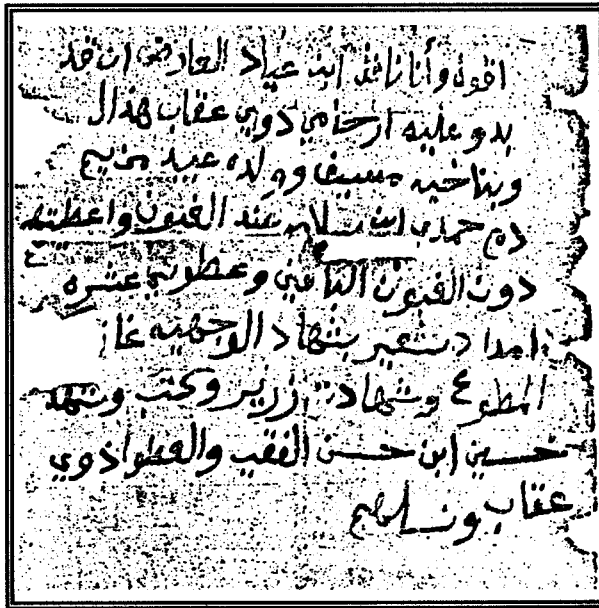 اقول وأنا نافذ ابن عياد العارضي ان قد
بدو عليه ارحامي ذوي عقاب هذال
وبناخيه مسيف وولده عبيد من يم
دم حمدي ابن سلامه عند الفنون واعطيته
دون الفنون الثامنين وعطوني عشره
امداد شعير بشهاد الوجهيه غاز
المطوع وشهادت زرير وكتب وشهد
حسين ابن حسن الفقيه والعطوا ذوي
عقاب وسلامهم